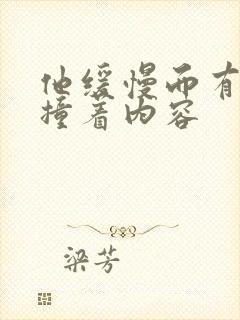 他缓慢而有
撞着内容
梁芳